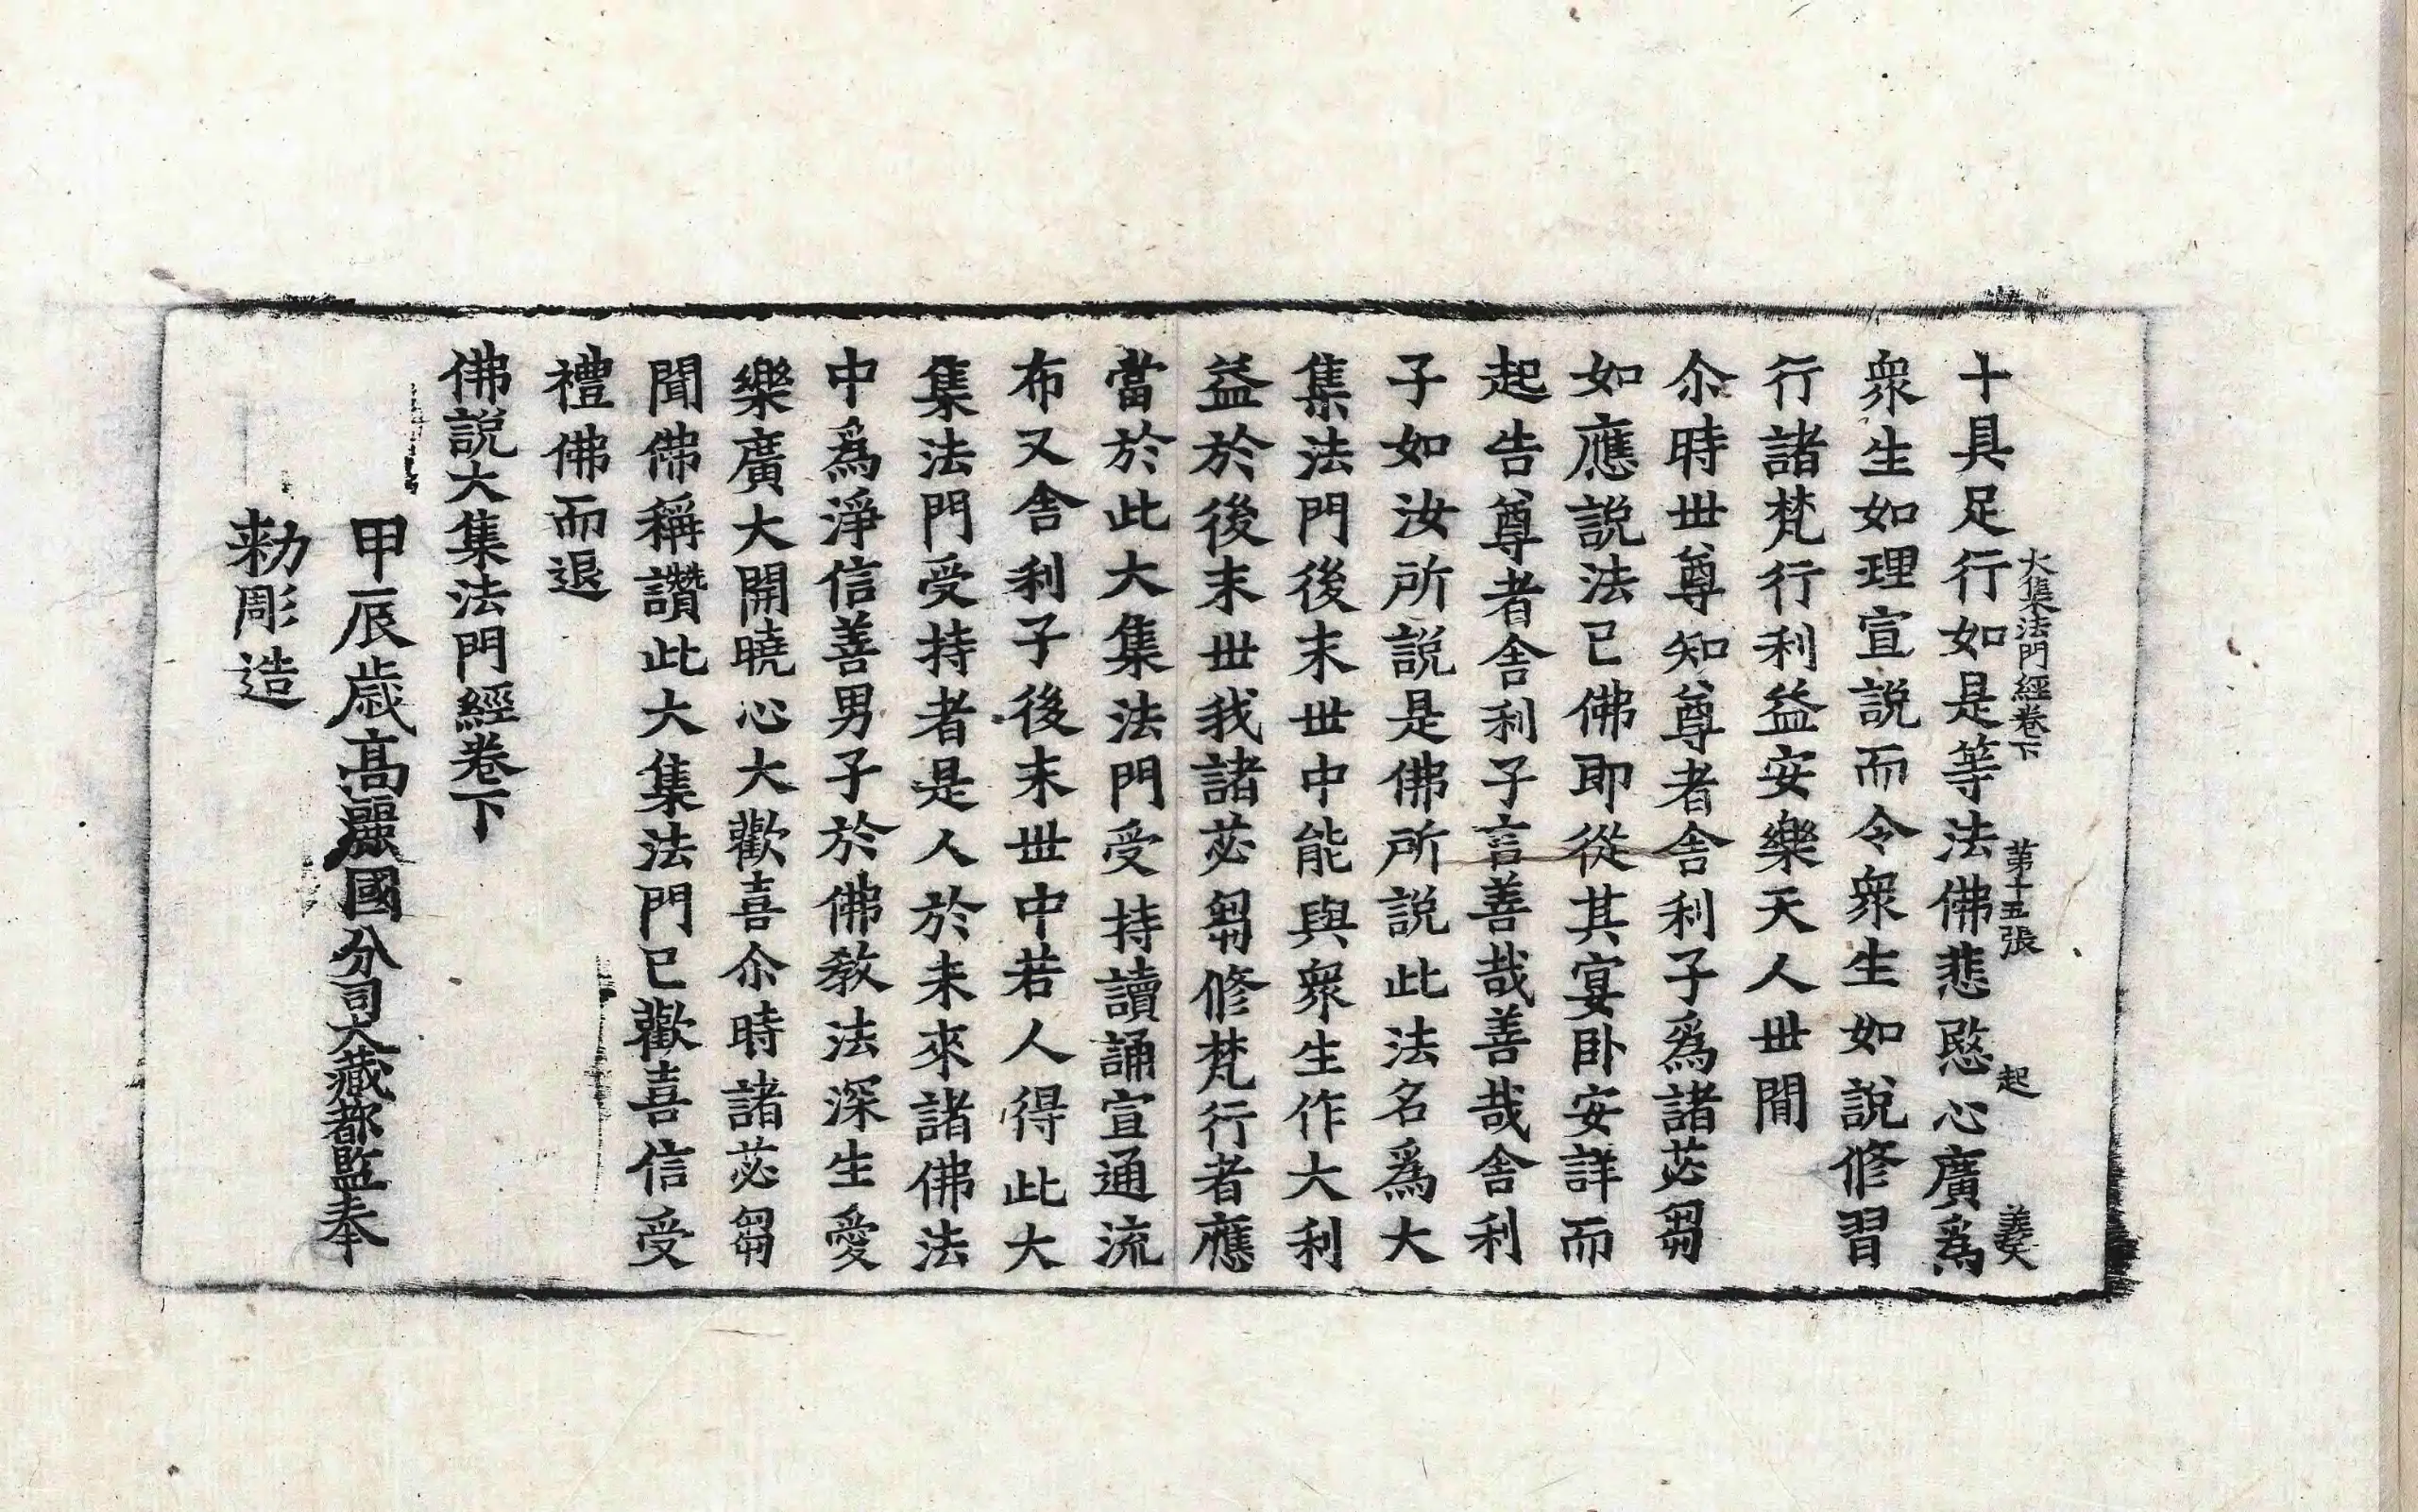 大集法門經卷下 第十五張 起
十具足行如是等法佛悲愍心廣爲
衆生如理宣說而令衆生如說修習
行諸梵行利益安樂天人世閒
尒時世尊知尊者舍利子爲諸苾芻
如應說法已佛即從其宴卧安詳而
起告尊者舍利子言善哉善哉舍利
子如汝所說是佛所說此法名爲大
集法門後末世中能與衆生作大利
益於後末世我諸苾芻修梵行者應
當於此大集法門受持讀誦宣通流
布又舍利子後末世中若人得此大
集法門受持者是人於未來諸佛法
中爲淨信善男子於佛教法深生愛
樂廣大開曉心大歡喜尒時諸苾芻
聞佛稱讚此大集法門已歡喜信受
禮佛而退
佛說大集法門經卷下
甲辰歲高麗國分司大藏都監奉
勅彫造